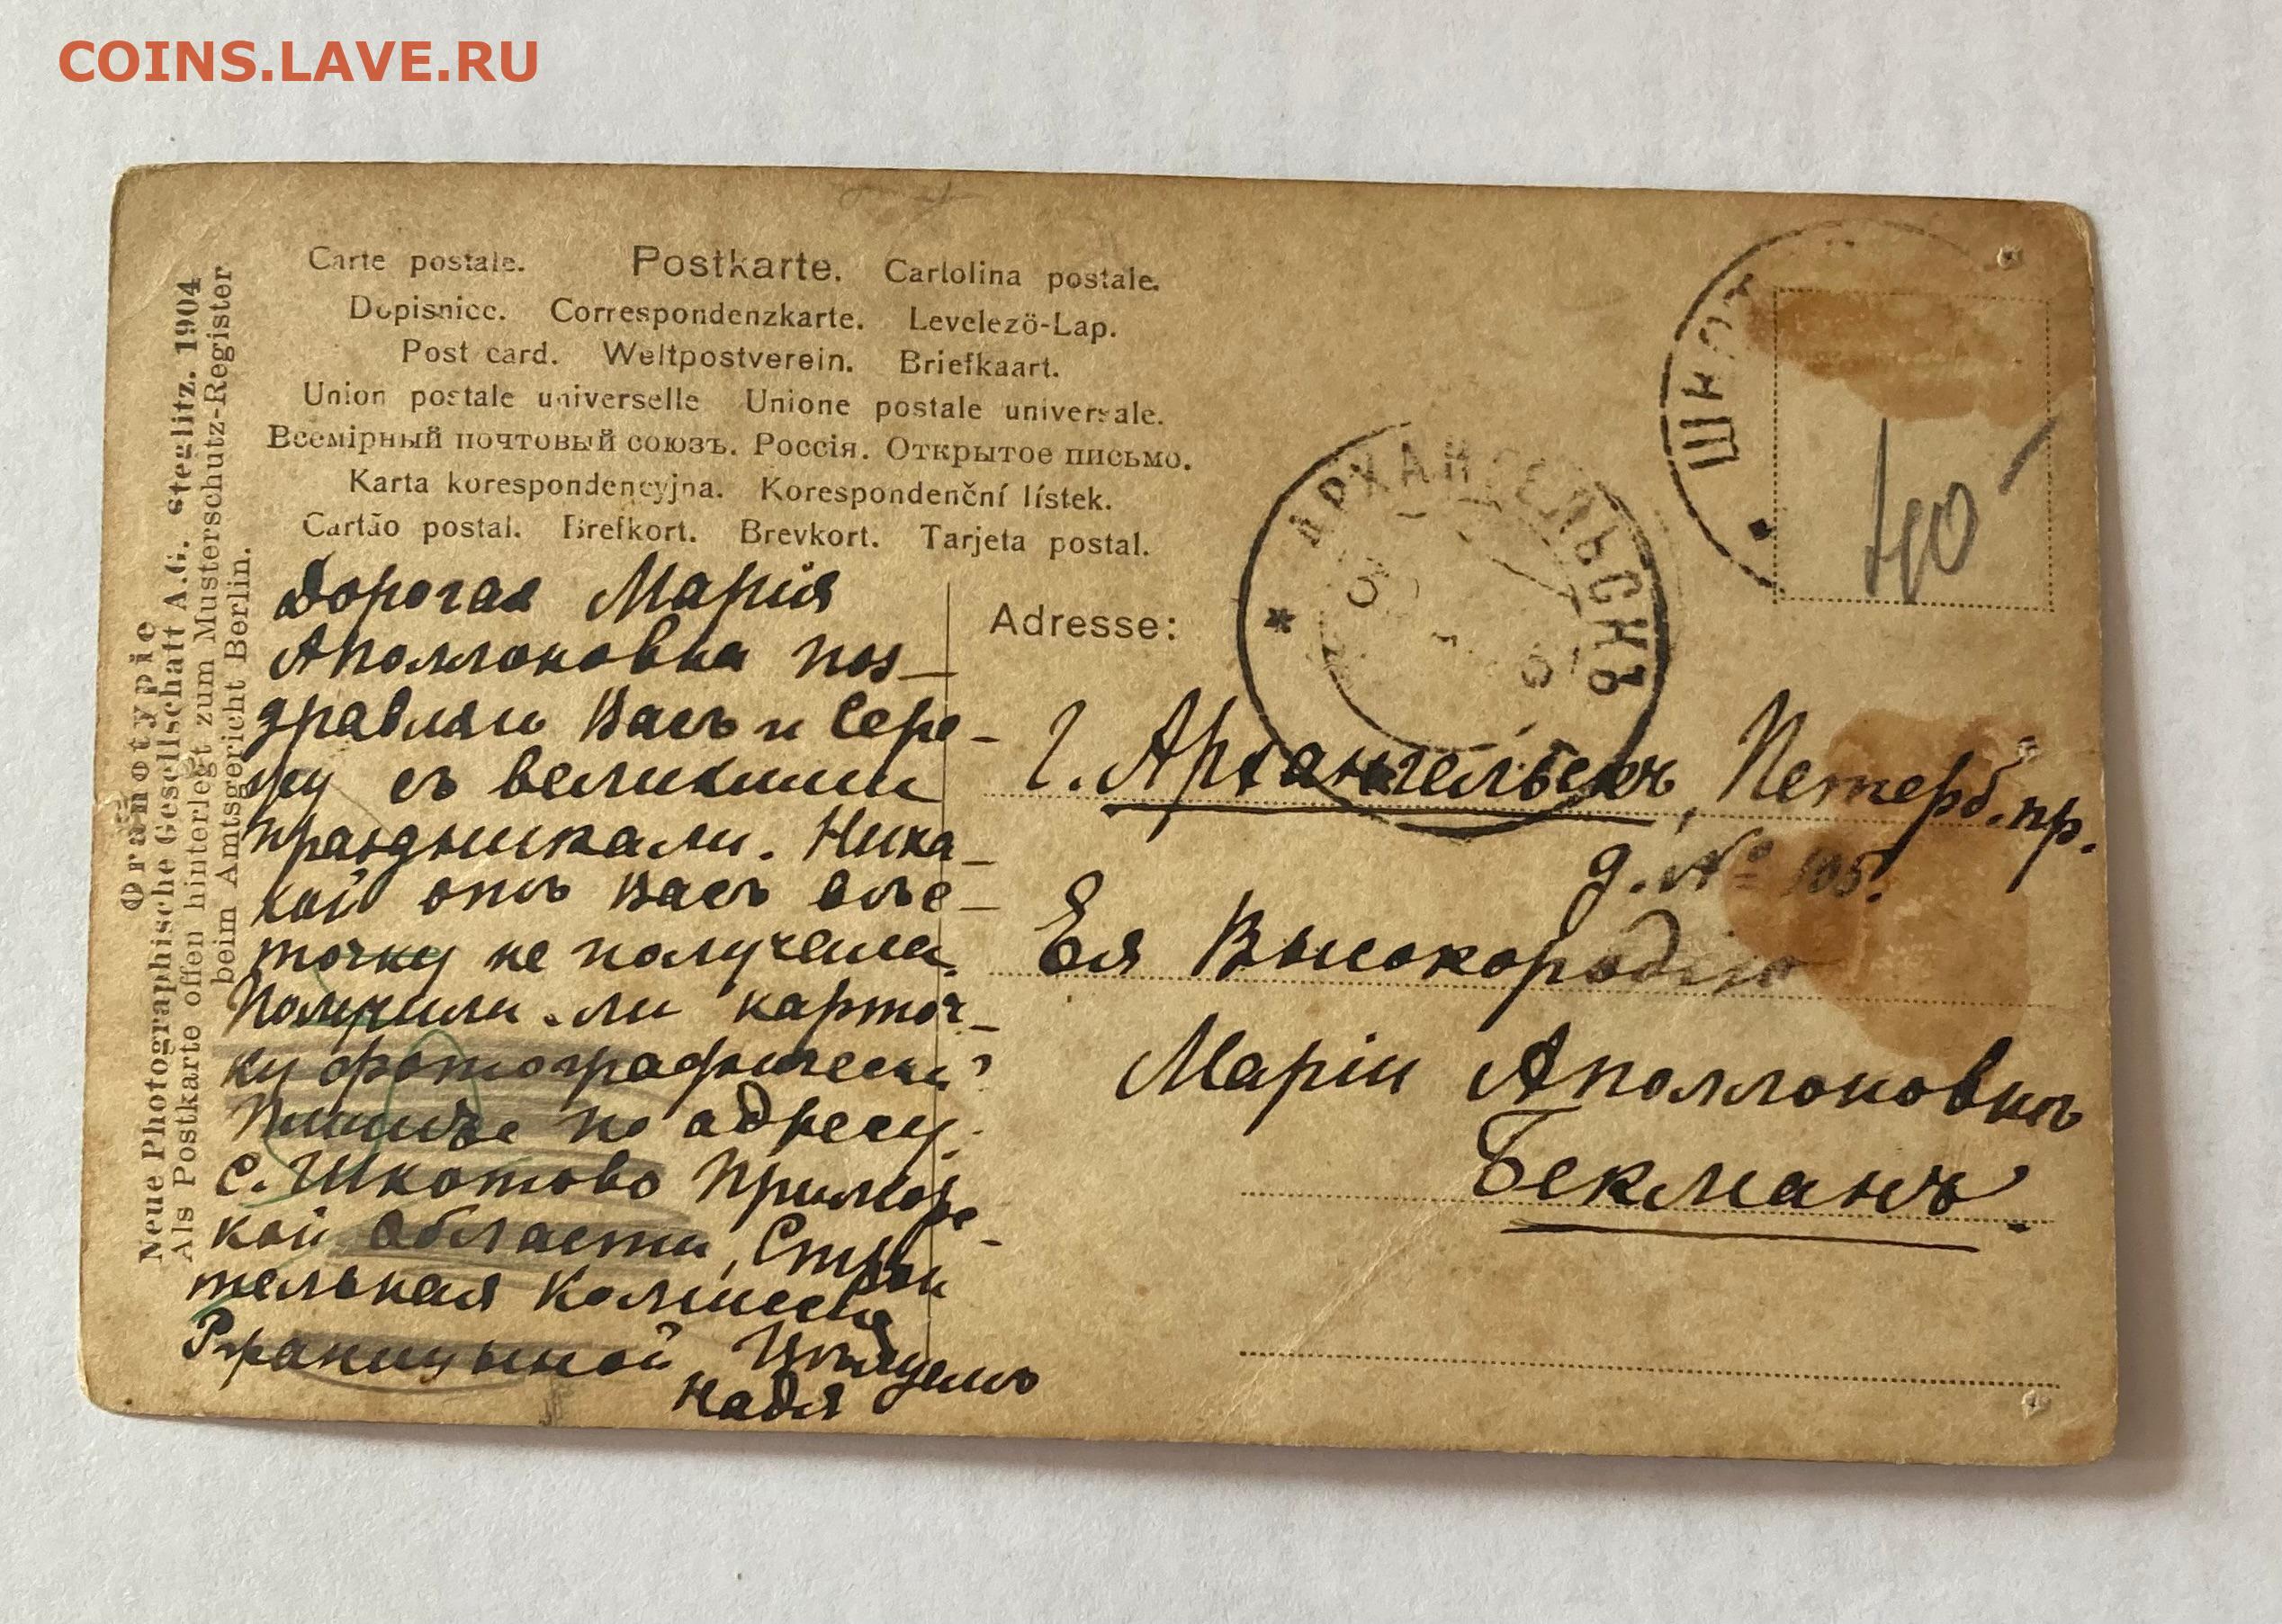 COINS.LAVE.RU
Carte postale. Postkarte. Cartolina postale.
Dopisnice. Correspondenzkarte. Levelező-Lap.
Post card. Weltpostverein. Briefkaart.
Union postale universelle Unione postale universale.
Всемірный почтовый союзъ. Россія. Открытое письмо.
Karta korespondencyjna. Korespondenční lístek.
Cartão postal. Brefkort. Brevkort. Tarjeta postal.
Orthotypie
Neue Photographische Gesellschaft A.G. Steglitz. 1904
Als Postkarte offen hinterlegt zum Musterschutz-Register
beim Amtsgericht Berlin.
Дорогая Марія
Аполлоновна поз-
дравляю Васъ и Сере-
жу съ великими
праздниками. Ника-
кой отъ Васъ вѣс-
точку не получала.
Получили-ли карточ-
ку фотографически?
Пишите по адресу:
С. Шкотово Приморс-
кой области, Строи
тельная Комиссія
Надя
Adresse:
АРХАНГЕЛЬСКЪ
ШКОТ
40
г. Архангельскъ, Петерб. пр.
д. № 105.
Ея Высокородію
Маріи Аполлоновнѣ
Бекманъ.